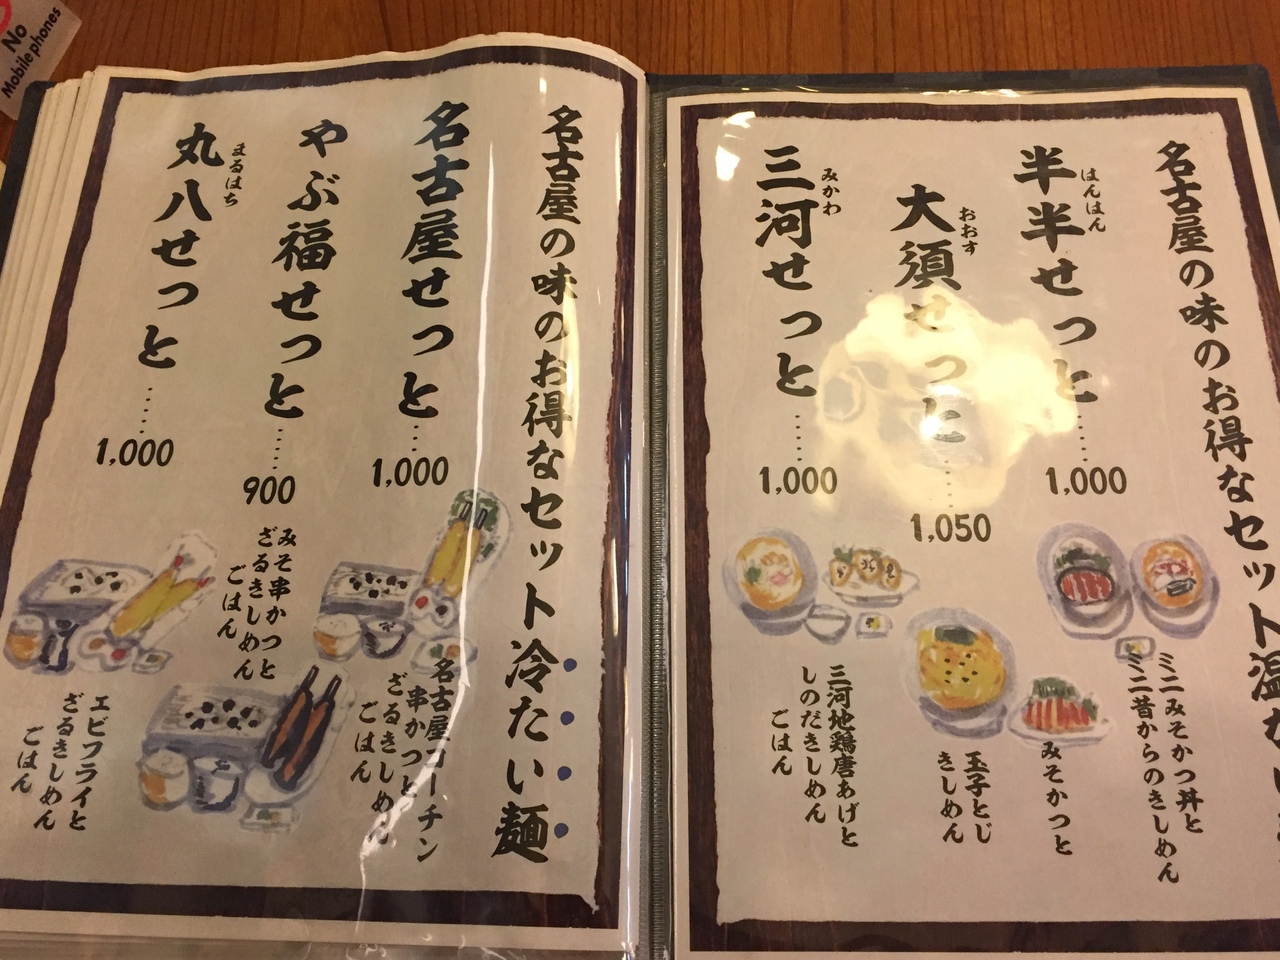 No
Mobile phones
名古屋の味のお得なセット温かい
半半せっと……1,000
はんはん
ミニみそかつ丼と
ミニ昔からのきしめん
大須せっと……1,050
おおす
みそかつと
玉子とじ
きしめん
三河せっと……1,000
みかわ
三河地鶏唐あげと
しのだきしめん
ごはん
名古屋の味のお得なセット冷たい麺
名古屋せっと……1,000
名古屋コーチン
串かつと
ざるきしめん
ごはん
やぶ福せっと……900
みそ串かつと
ざるきしめん
ごはん
丸八せっと……1,000
まるはち
エビフライと
ざるきしめん
ごはん